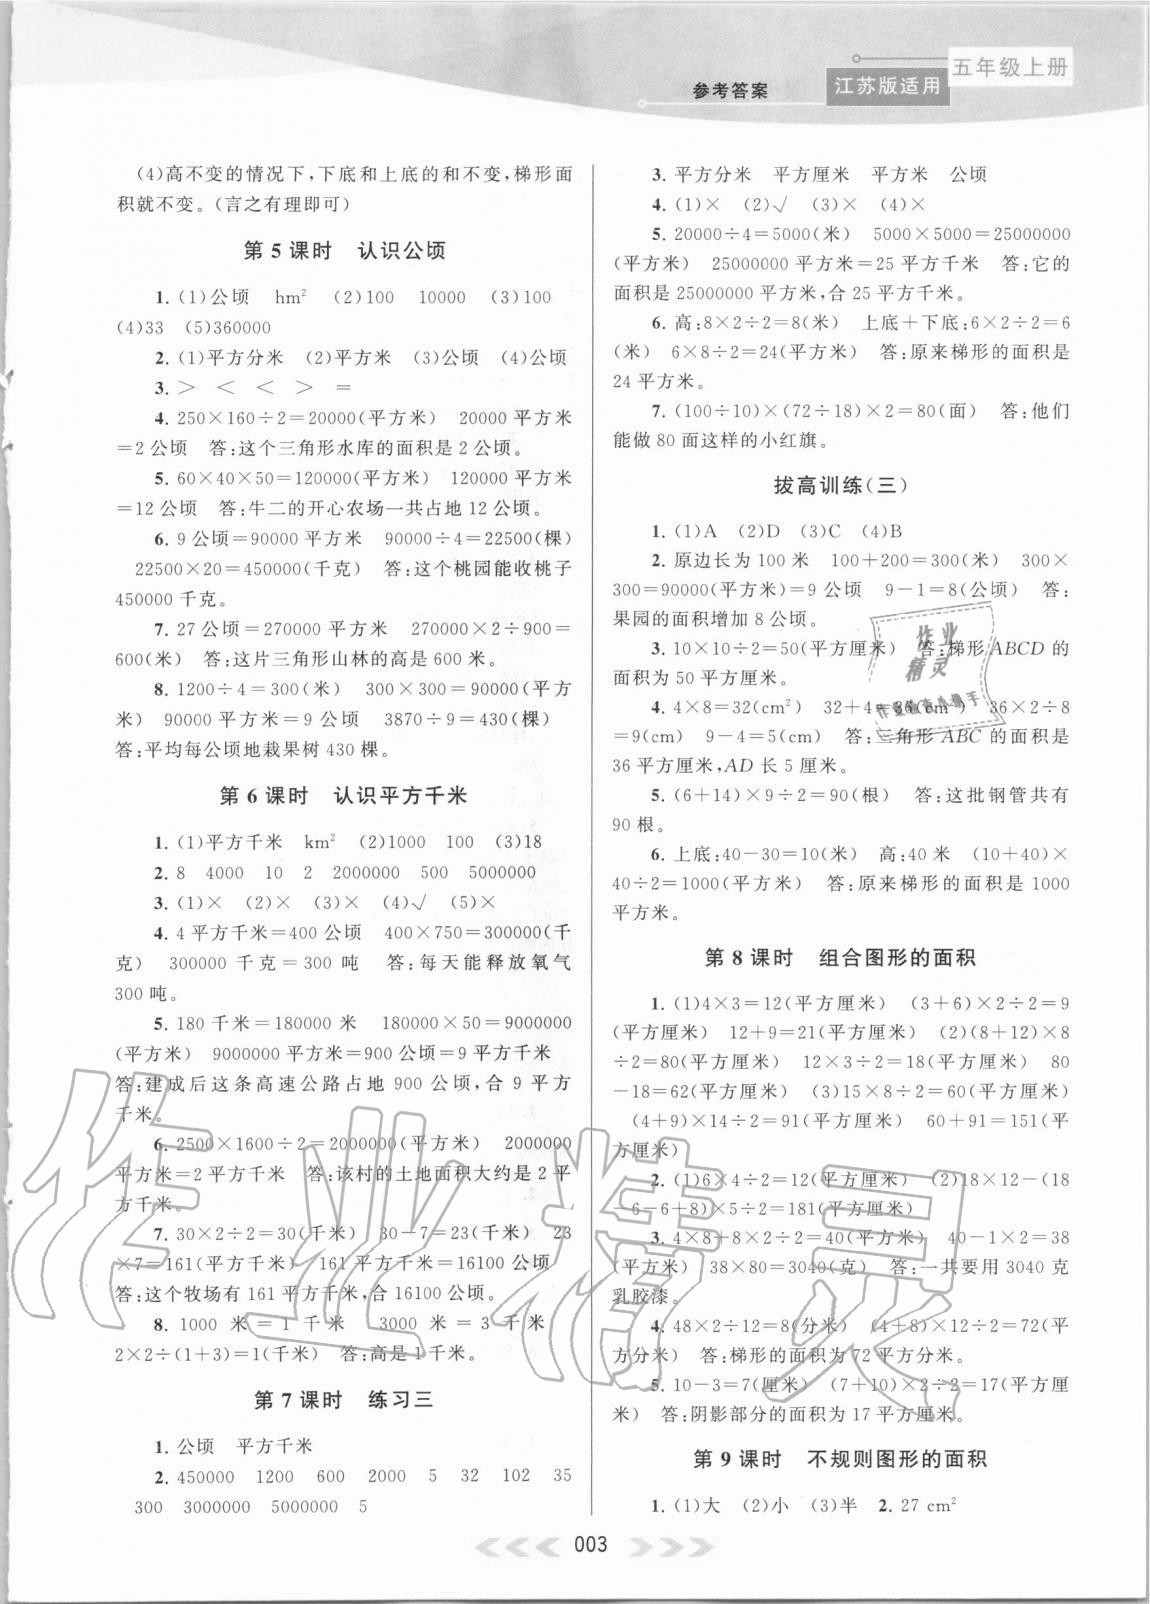 五年级上册
江苏版适用
参考答案
(4)高不变的情况下,下底和上底的和不变,梯形面
积就不变。(言之有理即可)
第 5 课时　认识公顷
1. (1)公顷　hm²　(2)100　10000　(3)100
(4)33　(5)360000
2. (1)平方分米　(2)平方米　(3)公顷　(4)公顷
3. ＞　＜　＜　＞　＝
4. 250×160÷2=20000(平方米)　20000 平方米
=2 公顷　答:这个三角形水库的面积是 2 公顷。
5. 60×40×50=120000(平方米)　120000 平方米
=12 公顷　答:牛二的开心农场一共占地 12 公顷。
6. 9 公顷=90000 平方米　90000÷4=22500(棵)
22500×20=450000(千克)　答:这个桃园能收桃子
450000 千克。
7. 27 公顷=270000 平方米　270000×2÷900=
600(米)　答:这片三角形山林的高是 600 米。
8. 1200÷4=300(米)　300×300=90000(平方
米)　90000 平方米=9 公顷　3870÷9=430(棵)
答:平均每公顷地栽果树 430 棵。
第 6 课时　认识平方千米
1. (1)平方千米　km²　(2)1000　100　(3)18
2. 8　4000　10　2　2000000　500　5000000
3. (1)×　(2)×　(3)×　(4)√　(5)×
4. 4 平方千米=400 公顷　400×750=300000(千
克)　300000 千克=300 吨　答:每天能释放氧气
300 吨。
5. 180 千米=180000 米　180000×50=9000000
(平方米)　9000000 平方米=900 公顷=9 平方千米
答:建成后这条高速公路占地 900 公顷,合 9 平方
千米。
6. 2500×1600÷2=2000000(平方米)　2000000
平方米=2 平方千米　答:该村的土地面积大约是 2 平
方千米。
7. 30×2÷2=30(千米)　30-7=23(千米)　23
×7=161(平方千米)　161 平方千米=16100 公顷
答:这个牧场有 161 平方千米,合 16100 公顷。
8. 1000 米=1 千米　3000 米=3 千米
2×2÷(1+3)=1(千米)　答:高是 1 千米。
第 7 课时　练习三
1. 公顷　平方千米
2. 450000　1200　600　2000　5　32　102　35
300　3000000　5000000　5
3. 平方分米　平方厘米　平方米　公顷
4. (1)×　(2)√　(3)×　(4)×
5. 20000÷4=5000(米)　5000×5000=25000000
(平方米)　25000000 平方米=25 平方千米　答:它的
面积是 25000000 平方米,合 25 平方千米。
6. 高:8×2÷2=8(米)　上底＋下底:6×2÷2=6
(米)　6×8÷2=24(平方米)　答:原来梯形的面积是
24 平方米。
7. (100÷10)×(72÷18)×2=80(面)　答:他们
能做 80 面这样的小红旗。
拔高训练(三)
1. (1)A　(2)D　(3)C　(4)B
2. 原边长为 100 米　100+200=300(米)　300×
300=90000(平方米)=9 公顷　9-1=8(公顷)　答:
果园的面积增加 8 公顷。
3. 10×10÷2=50(平方厘米)　答:梯形 ABCD 的
面积为 50 平方厘米。
4. 4×8=32(cm²)　32+4=36(cm²)　36×2÷8
=9(cm)　9-4=5(cm)　答:三角形 ABC 的面积是
36 平方厘米,AD 长 5 厘米。
5. (6+14)×9÷2=90(根)　答:这批钢管共有
90 根。
6. 上底:40-30=10(米)　高:40 米　(10+40)×
40÷2=1000(平方米)　答:原来梯形的面积是 1000
平方米。
第 8 课时　组合图形的面积
1. (1)4×3=12(平方厘米)　(3+6)×2÷2=9
(平方厘米)　12+9=21(平方厘米)　(2)(8+12)×8
÷2=80(平方厘米)　12×3÷2=18(平方厘米)　80
-18=62(平方厘米)　(3)15×8÷2=60(平方厘米)
(4+9)×14÷2=91(平方厘米)　60+91=151(平
方厘米)
2. (1)6×4÷2=12(平方厘米)　(2)18×12-(18
-6-6+8)×5÷2=181(平方厘米)
3. 4×8+8×2÷2=40(平方米)　40-1×2=38
(平方米)　38×80=3040(克)　答:一共要用 3040 克
乳胶漆。
4. 48×2÷12=8(分米)　(4+8)×12÷2=72(平
方分米)　答:梯形的面积为 72 平方分米。
5. 10-3=7(厘米)　(7+10)×2÷2=17(平方厘
米)　答:阴影部分的面积为 17 平方厘米。
第 9 课时　不规则图形的面积
1. (1)大　(2)小　(3)半　2. 27 cm²
003
作业
精灵
作业精灵